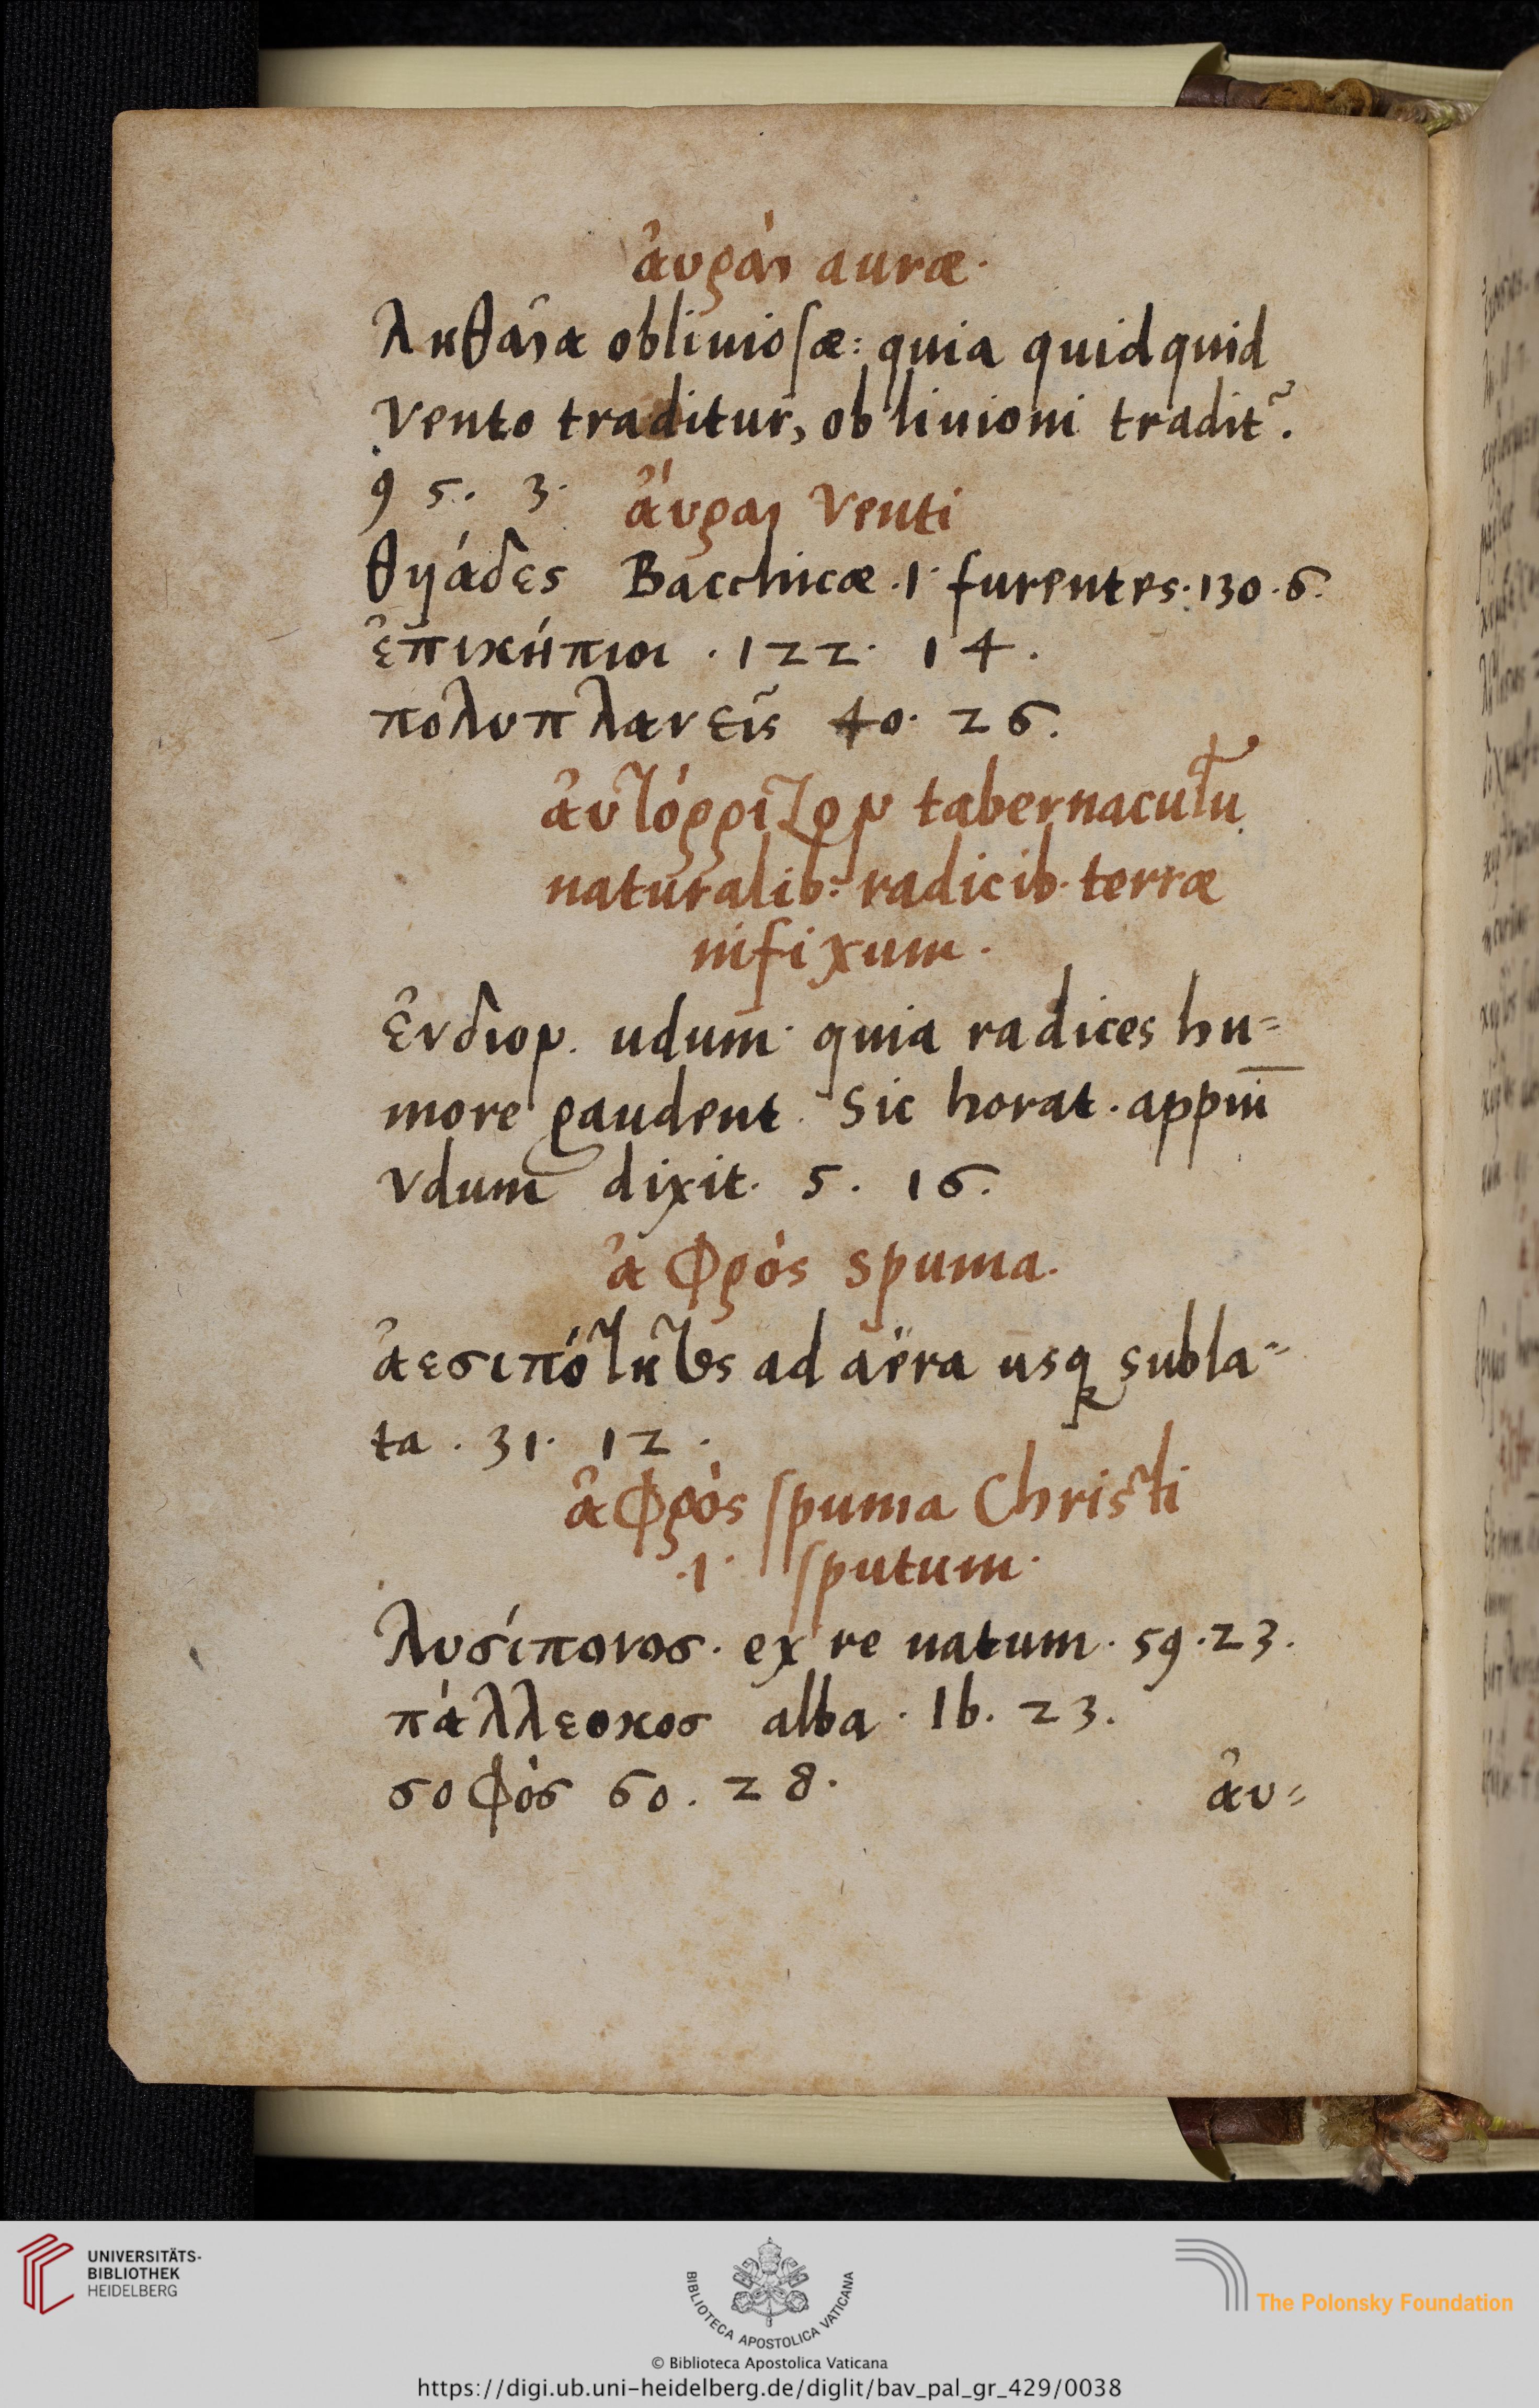 ἀυραὶ auræ.
ληθαῖα obliuiosæ: quia quidquid
vento traditur, obliuioni tradit̃.
9 5. 3. ἄυραι venti
θυάδες Bacchicæ .1. furentes. 130. 6.
ἐπικήπιοι . 122. 14.
πολυπλανεῖς 40. 26.
ἀυτόρριζον tabernaculū
naturalib: radicib. terræ
infixum.
ἔνδιον. udum. quia radices hu=
more gaudent. Sic horat. appiū
vdum dixit. 5. 16.
ἀφρὸς spuma.
ἀεσιπότητος ad aëra usq subla=
ta . 31. 12 .
ἀφρὸς spuma Christi
.1. sputum.
λυσίπονοσ. ex re natum. 59. 23.
πάλλευκοσ alba . Ib. 23.
σοφὸσ 60. 28.
ἀυ=
UNIVERSITÄTS-
BIBLIOTHEK
HEIDELBERG
BIBLIOTECA APOSTOLICA VATICANA
The Polonsky Foundation
© Biblioteca Apostolica Vaticana
https://digi.ub.uni-heidelberg.de/diglit/bav_pal_gr_429/0038